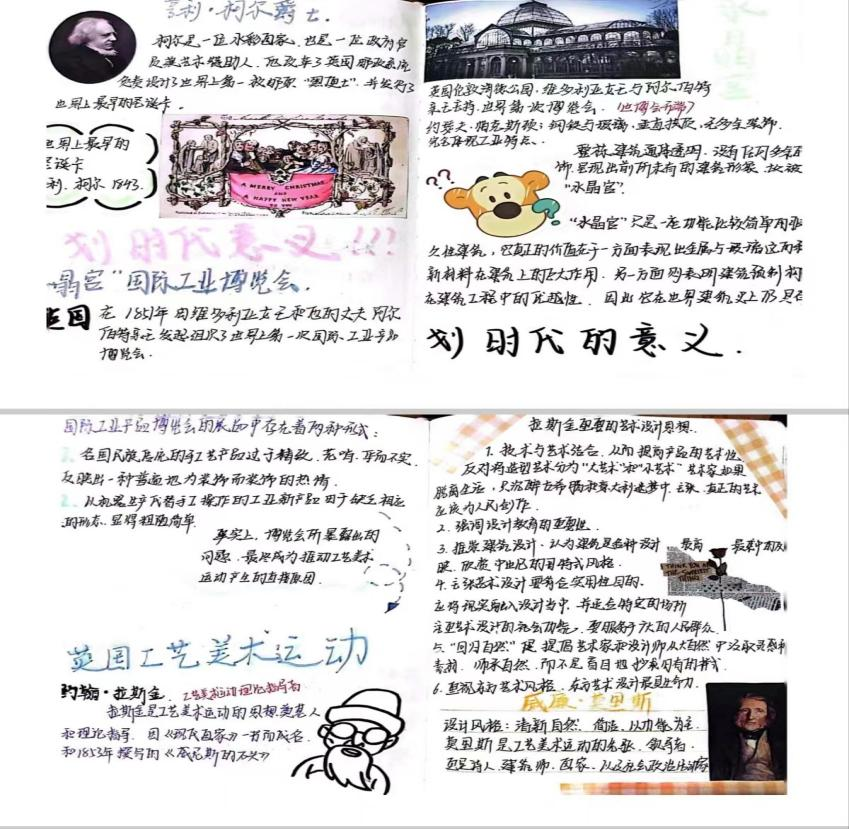 亨利·柯尔爵士.
柯尔是一位水彩画家,也是一位政府官
员兼艺术赞助人.他改革了英国邮政系统
负责设计了世界上第一枚邮票“黑便士”.并发行了
世界上最早的圣诞卡.
世界上最早的
圣诞卡
利.柯尔 1843.
A MERRY CHRISTMAS
AND A
HAPPY NEW YEAR
TO YOU
划时代意义!!!
晶宫”国际工业博览会.
英国 在1851年由维多利亚女王和她的丈夫阿尔
伯特亲王发起组织了世界上第一次国际工业产品
博览会.
水晶宫
英国伦敦海德公园.维多利亚女王与阿尔伯特
亲王主持.世界第一次博览会.(世博会开端)
约瑟夫·帕克斯顿:钢铁与玻璃.垂直换政.无多余装饰.
完全体现工业特点.
整栋建筑通体透明.没有任何多余
饰.呈现出前所未有的建筑形象.故被
“水晶宫”.
“水晶宫”只是一座功能比较简单的非
久性建筑,它真的价值在于一方面表现出金属与玻璃这两种
新材料在建筑上的巨大作用.另一方面则表明建筑预制构
在建筑工程中的优越性.因此它在世界建筑史上仍具有
划时代的意义.
国际工业产品博览会的展品中存在着两种形式:
1.各国民族急流的手工艺产品过于精致.花哨.而不实.
反映出一种普遍地为装饰而装饰的热情.
2.从机器生产代替手工操作的工业新产品由于缺乏相应
的形态.显得粗陋简单.
事实上,博览会所暴露出的
问题.最终成为推动工艺美术
运动产生的直接原因.
英国工艺美术运动
约翰·拉斯金.工艺美术运动理论指导者
拉斯金是工艺美术运动的思想奠基人
和理论指导.因《现代画家》一书而成名.
和1853年撰写的《威尼斯的石头》
拉斯金重要的艺术设计思想.
1.技术与艺术结合.从而提高产品的艺术性.
反对将造型艺术分为“大艺术”和“小艺术”艺术家如果
脱离生活,只沉醉古希腊和意大利迷梦中.主张.真正的艺术
应该为人民创作.
2.强调设计教育的重要性.
3.推崇建筑设计.认为建筑是各种设计 最高 最集中的反
映.欣赏中世纪的哥特式风格.
THINK YOU ARE
THE SWEETEST
THING
4.主张艺术设计要有会实用性目的.
应将现实融入设计当中.并适合特定的场所
注重艺术设计的社会功能.要服务于广大的人民群众.
5.“回归自然”提.提倡艺术家和设计师从大自然中汲取灵感和
素材.师承自然.而不是盲目地抄袭旧有的样式.
6.重视东方艺术风格.东方艺术设计最具生命力.
威廉·莫里斯
设计风格:清新自然.简洁.以功能为主.
莫里斯是工艺美术运动的先驱.领导者.
更是诗人.建筑师.画家.以及社会政治活动家